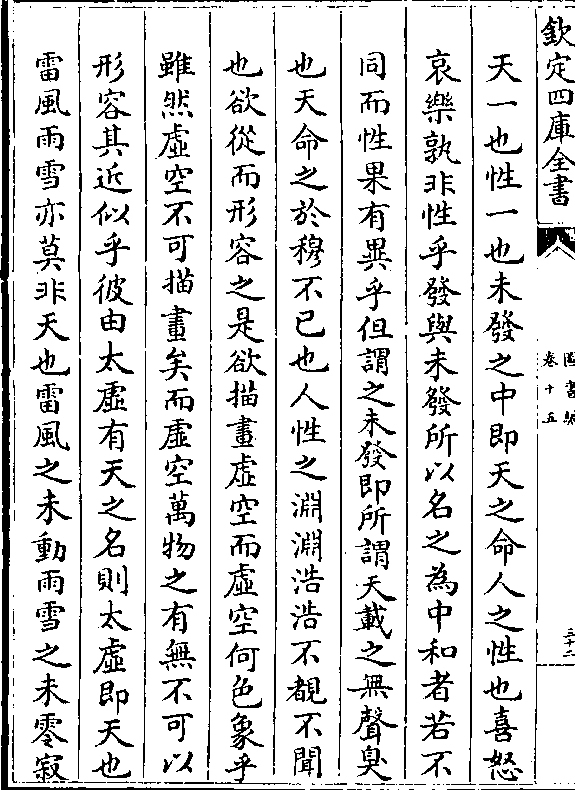 欽定四庫全書
圖書編
卷十五
三十二
天一也性一也未發之中即天之命人之性也喜怒
哀樂孰非性乎發與未發所以名之為中和者若不
同而性果有異乎但謂之未發即所謂天載之無聲臭
也天命之於穆不已也人性之淵淵浩浩不覩不聞
也欲從而形容之是欲描畫虛空而虛空何色象乎
雖然虛空不可描畫矣而虛空萬物之有無不可以
形容其近似乎彼由太虛有天之名則太虛即天也
雷風雨雪亦莫非天也雷風之未動雨雪之未零寂